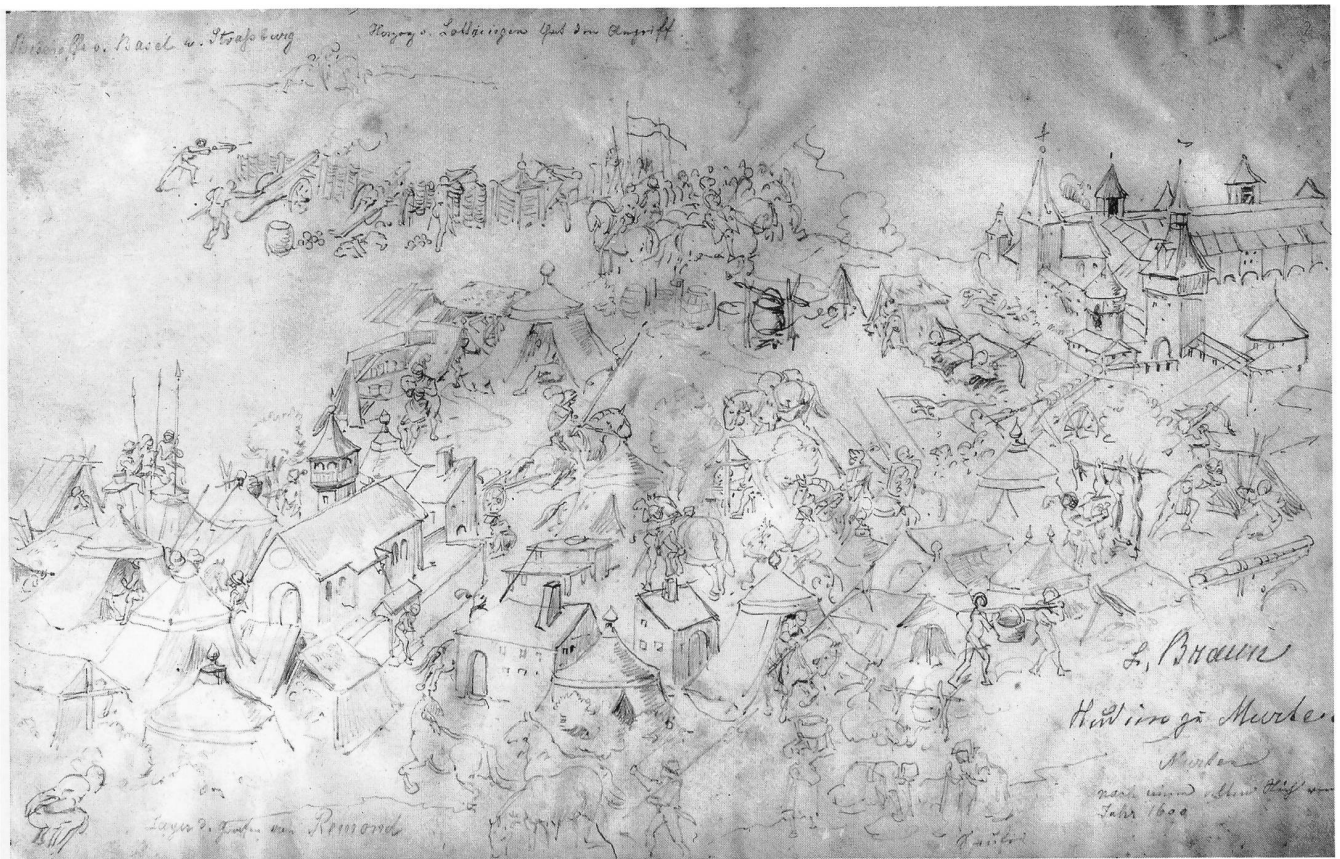 Bischöfe v. Basel u. Straßburg
Herzog v. Lothringen hat den Angriff.
L. Braun
Studien zu Murten
Murten
nach einem alten Stich vom
Jahr 1600
Lager d. Grafen von Romond